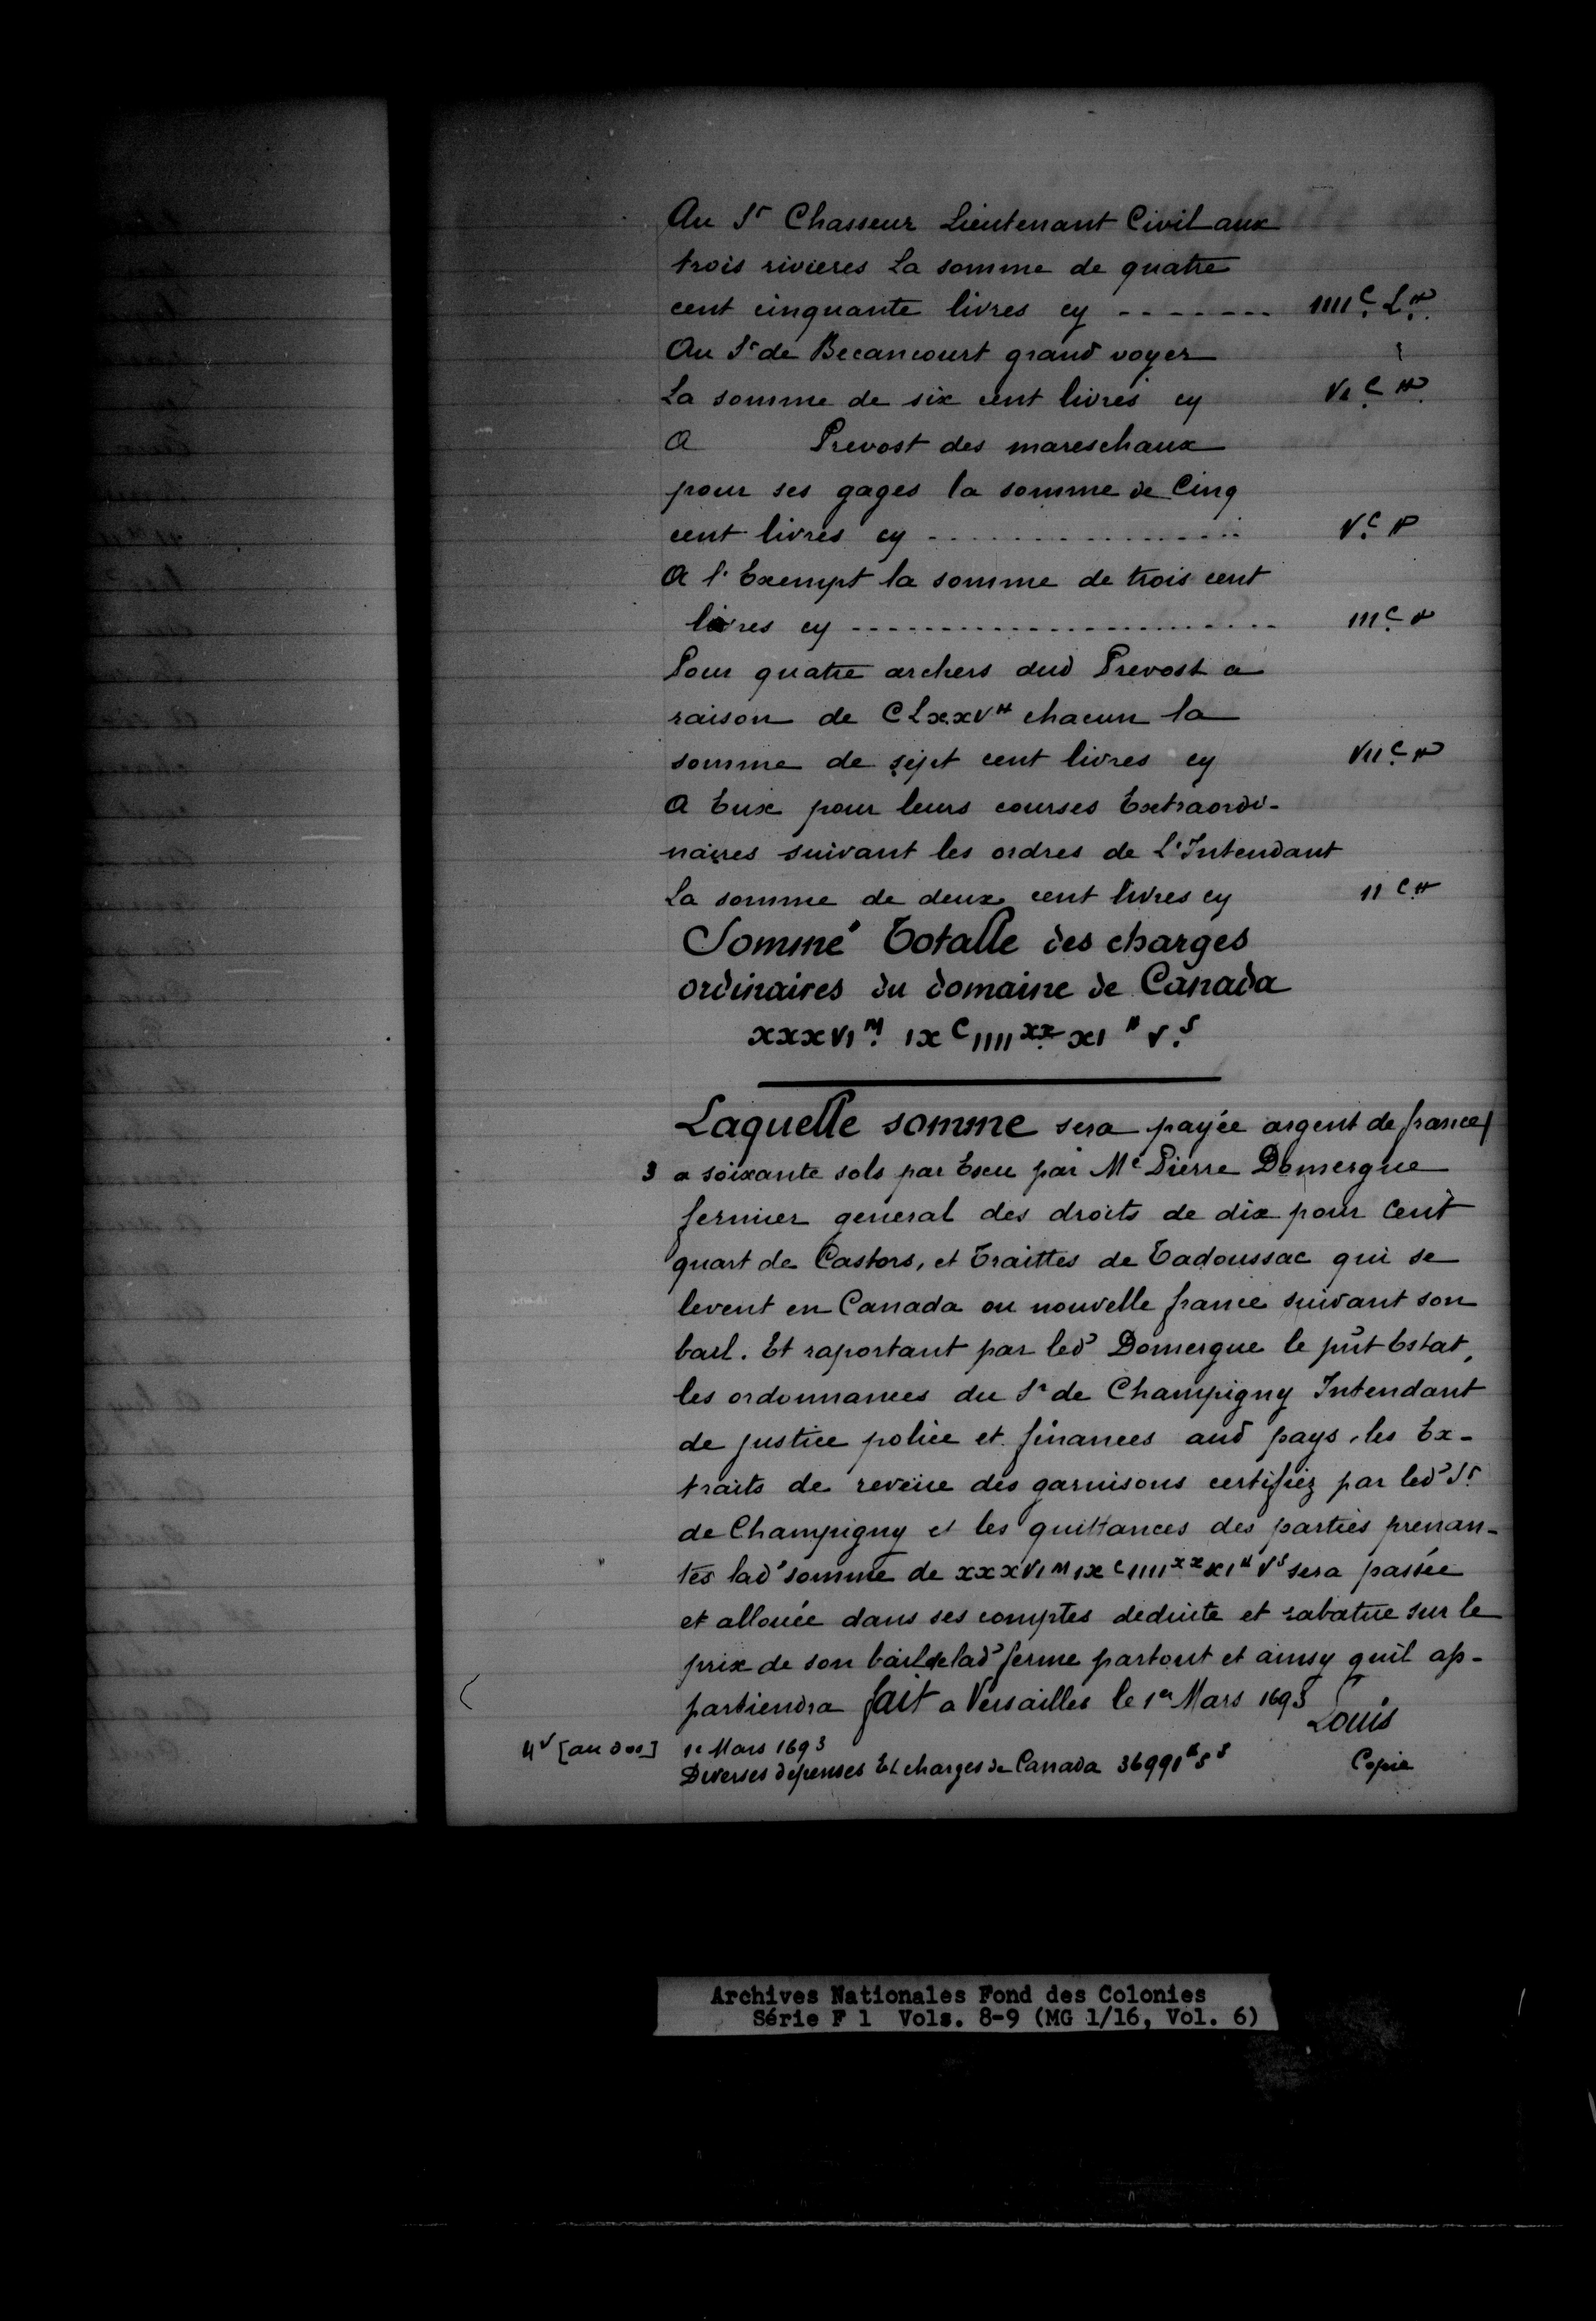 Au Sr Chasseur Lieutenant Civil aux
trois rivieres La somme de quatre
cent cinquante livres cy - - - - - - - IIIIC L ₶
Au Sr de Becancourt grand voyer
La somme de six cent livres cy VI C ₶
A Prevost des mareschaux
pour ses gages la somme de Cinq
cent livres cy - - - - - - - - - - - - VC ₶
A l'Exempt la somme de trois cent
livres cy - - - - - - - - - - - - - - - IIIC ₶
Pour quatre archers dud Prevost a
raison de CLxxV₶ chacun la
somme de sept cent livres cy VIIC ₶
A Eux pour leurs courses Extraordi-
naires suivant les ordres de L'Intendant
La somme de deux cent livres cy II C ₶
Somme Totalle des charges
ordinaires du domaine de Canada
xxxVI M IX C IIII xx XI ₶ V S
Laquelle somme sera payée argent de france
3 a soixante sols par Escu par Me Pierre Domergue
fermier general des droits de dix pour Cent
quart de Castors, et Traittes de Tadoussac qui se
levent en Canada ou nouvelle france suivant son
bail. Et raportant par led Domergue le pnt Estat,
les ordonnances du Sr de Champigny Intendant
de justice police et finances aud pays, les Ex-
traits de reveüe des garnisons certifiez par led Sr
de Champigny et les quittances des parties prenan-
tes lad somme de xxxVI M IX C IIII xx XI ₶ V S sera passée
et allouée dans ses comptes deduite et rabatue sur le
prix de son bail de lad ferme partout et ainsy quil ap-
partiendra fait a Versailles le 1er Mars 1693
Louis
4v [au dos] 1e Mars 1693
Diverses depenses Et charges de Canada 36991₶ 5s Copie
Archives Nationales Fond des Colonies
Série F 1 Vols. 8-9 (MG 1/16, Vol. 6)